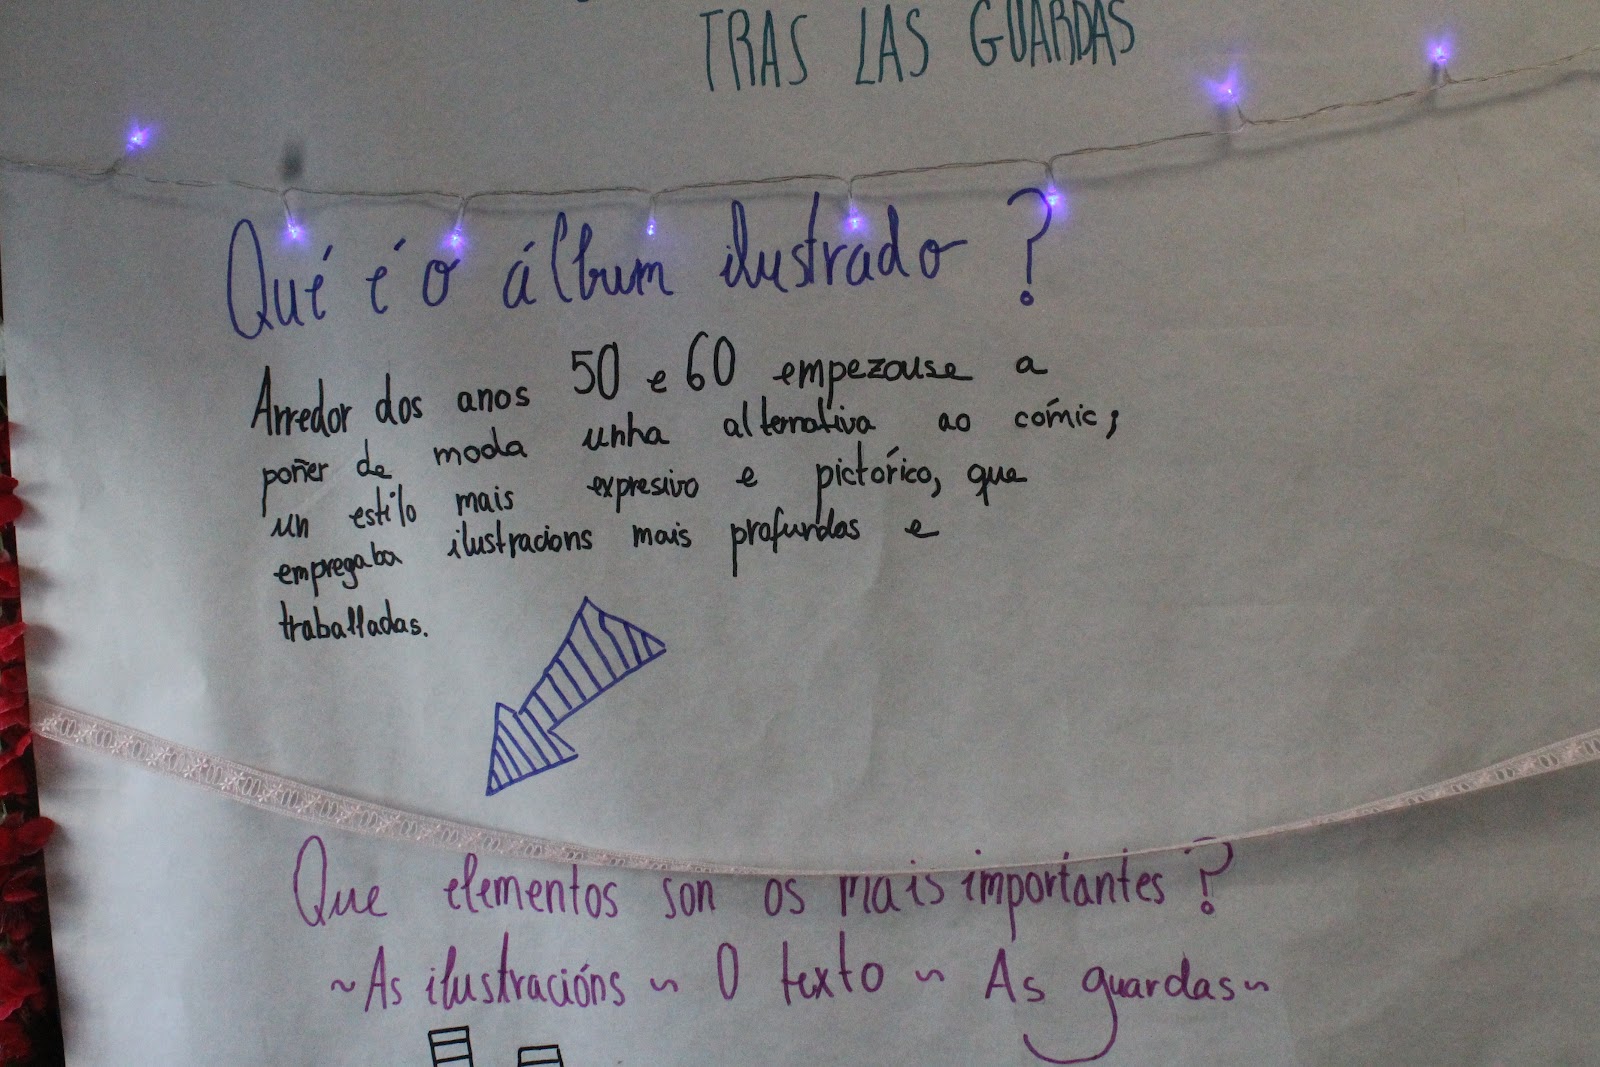 TRAS LAS GUARDAS
Qué é o álbum ilustrado?
Arredor dos anos 50 e 60 empezouse a
poñer de moda unha alternativa ao cómic;
un estilo mais expresivo e pictórico, que
empregaba ilustracions mais profundas e
traballadas.
Que elementos son os mais importantes?
~As ilustracións ~ O texto ~ As guardas~